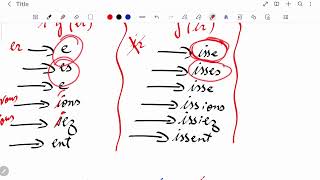 Title
y (er)
y (ir)
er → e
→ es
→ e
vous → ions
→ iez
→ ent
ir → isse
→ isses
→ isse
→ issions
→ issiez
→ issent